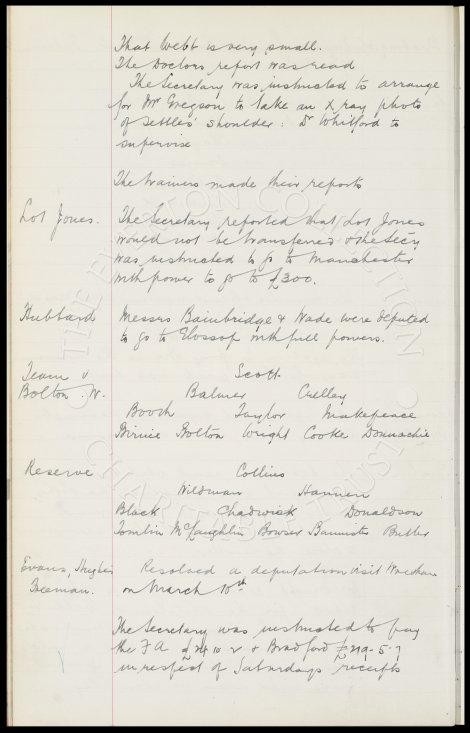 That Webb is very small.
The Doctors report was read
The Secretary was instructed to arrange
for Mr Gregson to take an X ray photo
of Settles' shoulder: Dr Whitford to
supervise
The trainers made their reports
Lot Jones. The Secretary reported that Lot Jones
would not be transferred & the Secy
was instructed to go to Manchester
with power to go to £300.
Hubbard Messrs Bainbridge & Wade were deputed
to go to Glossop with full powers.
Team v Scott
Bolton W. Balmer Crelley
Booth Taylor Makepeace
Birnie Bolton Wright Cooke Donnachie
Reserve Collins
Wildman Hannen
Black Chadwick Donaldson
Tomlin McLaughlin Bowser Bannister Butler
Evans, Hughes Resolved a deputation visit Wrexham
Freeman. on March 10th
The Secretary was instructed to pay
the FA & Bradford
in respect of Saturdays receipts
THE EVERTON COLLECTION
CHARITABLE TRUST